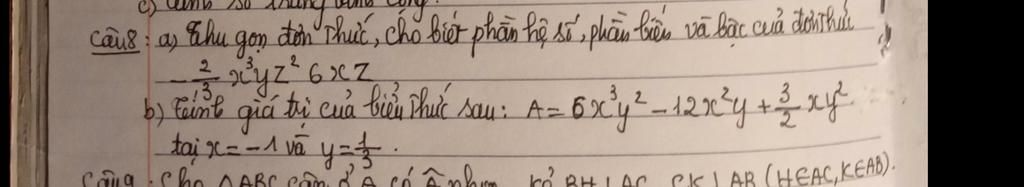 c) tính số
Câu8: a) Thu gọn đơn thức, cho biết phần hệ số, phần biến và bậc của đơn thức
- 2/3 x³yz² 6xz
b) tính giá trị của biểu thức sau: A = 6x³y² - 12x²y + 3/2 xy²
tại x = -1 và y = 1/3.
Câu9: Cho △ABC cân ở A có Â nhọn kẻ BH⊥AC, CK⊥AB (H∈AC, K∈AB).